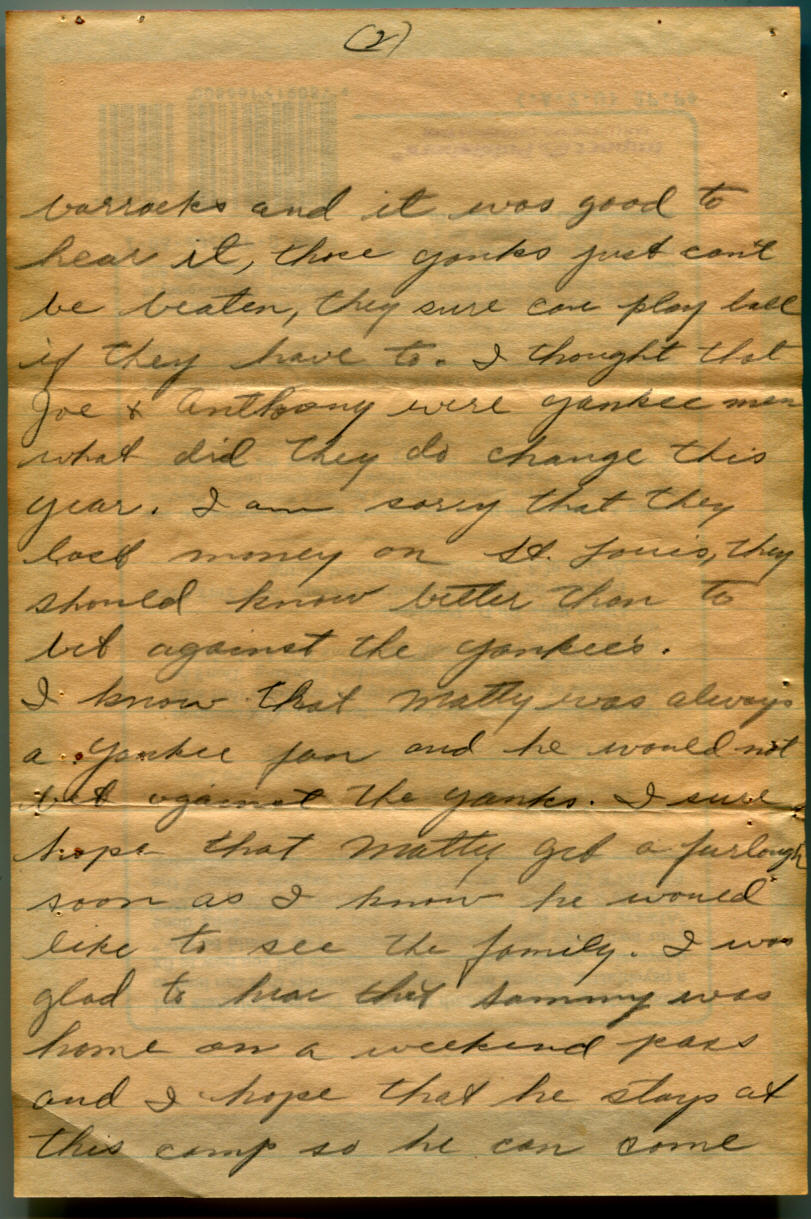 (2)
barracks and it was good to
hear it, those yanks just can't
be beaten, they sure can play ball
if they have to. I thought that
Joe & Anthony were yankee men
what did they do change this
year. I am sorry that they
lost money on St. Louis, they
should know better than to
bet against the yankee's.
I know that Matty was always
a Yankee fan and he would not
bet against the yanks. I sure
hope that Matty get a furlough
soon as I know he would
like to see the family. I was
glad to hear that Sammy was
home on a weekend pass
and I hope that he stays at
this camp so he can come